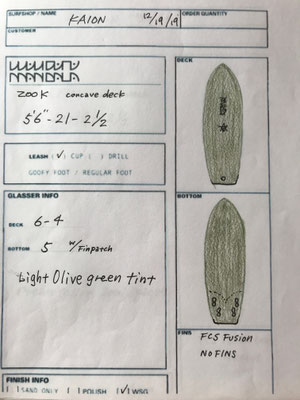 SURFSHOP / NAME KAION 12/19/19 ORDER QUANTITY
CUSTOMER
MANDALA
ZOOK concave deck
5'6" - 21 - 2 1/2
LEASH (✓) CUP ( ) DRILL
GOOFY FOOT / REGULAR FOOT
GLASSER INFO
DECK 6-4
BOTTOM 5 w/Finpatch
Light Olive green tint
FINISH INFO
( ) SAND ONLY ( ) POLISH (✓) WSG
DECK
BOTTOM
FINS FCS Fusion
NO FINS